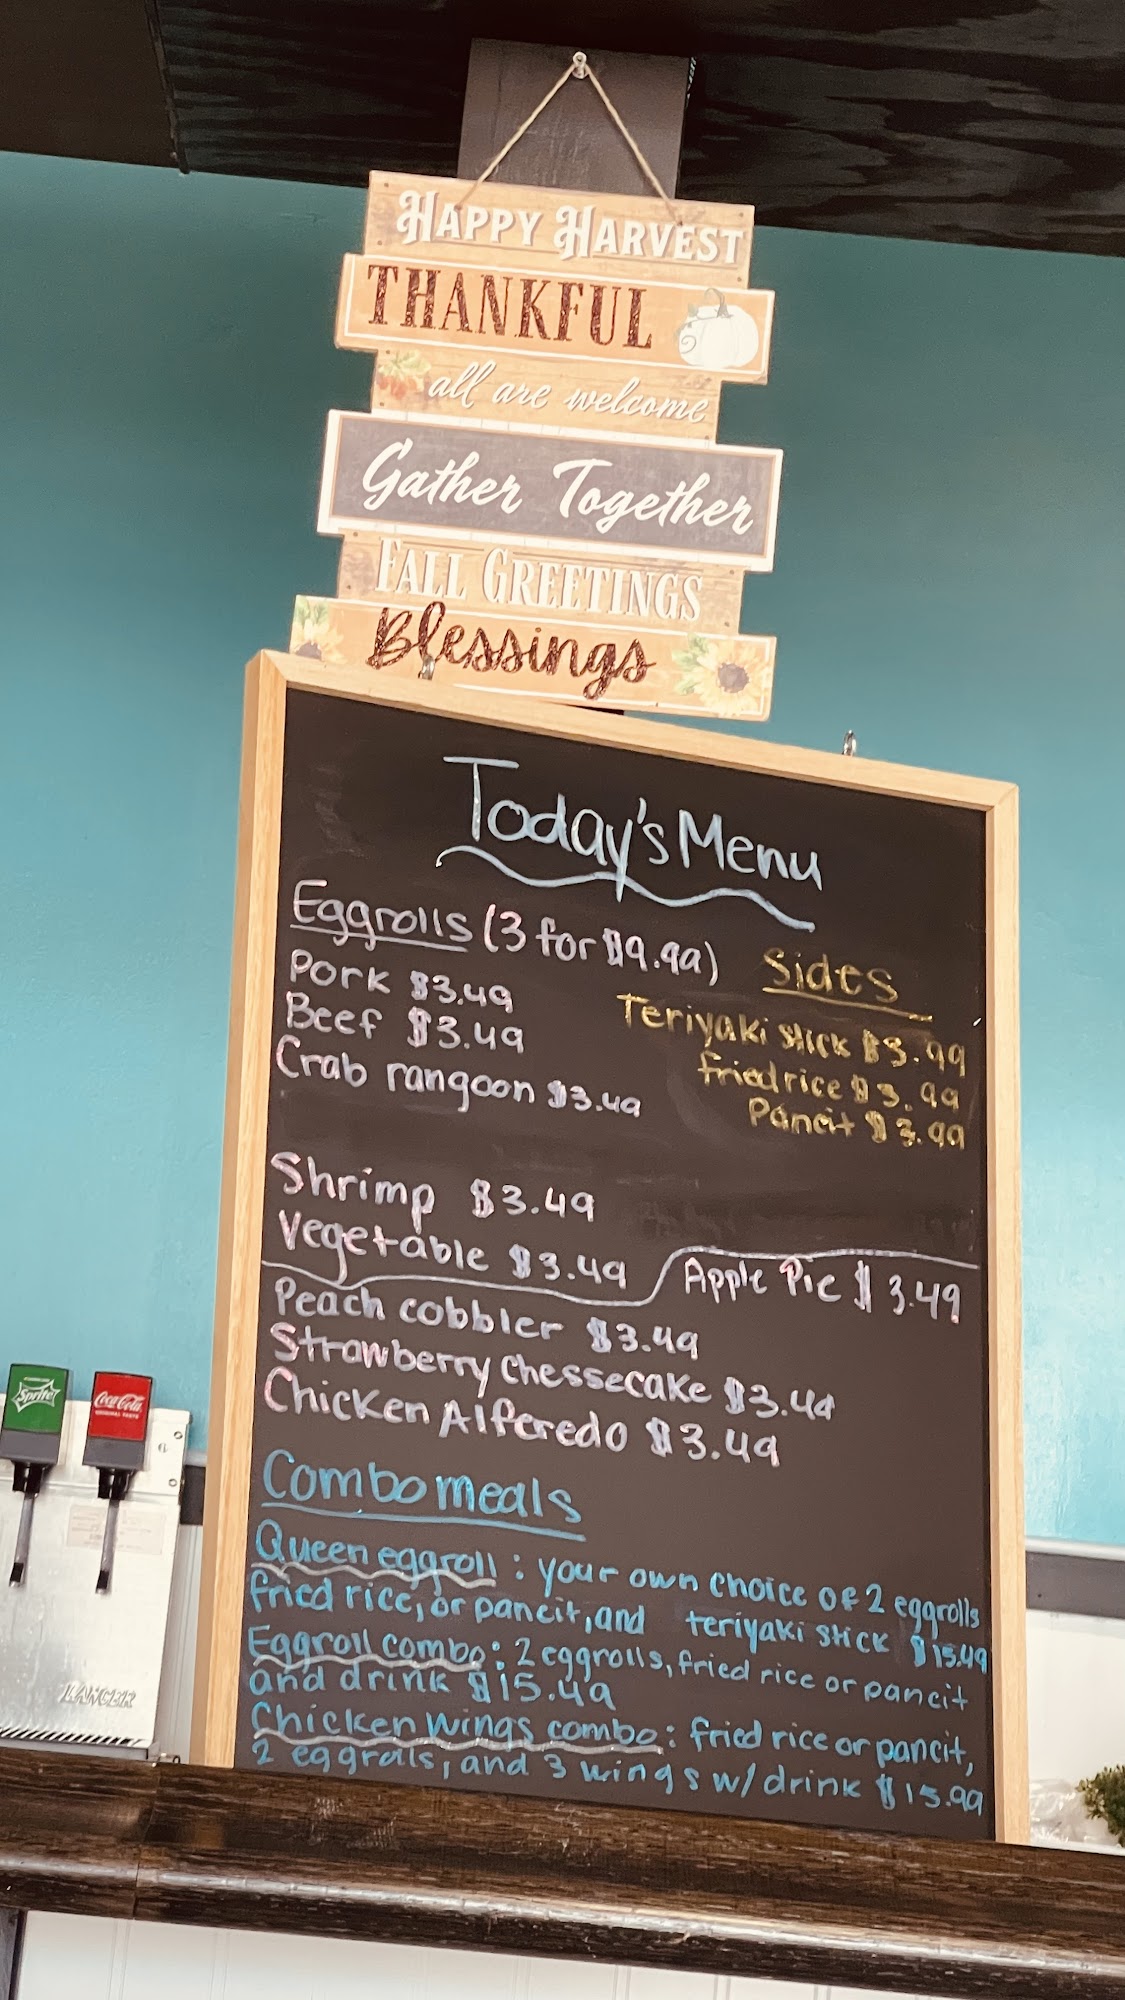 HAPPY HARVEST
THANKFUL
all are welcome
Gather Together
FALL GREETINGS
Blessings
Today's Menu
Eggrolls (3 for $9.99)
Pork $3.49
Beef $3.49
Crab rangoon $3.49
Shrimp $3.49
Vegetable $3.49
Sides
Teriyaki stick $3.99
fried rice $3.99
Pancit $3.99
Apple Pie $3.49
Peach cobbler $3.49
Strawberry Chessecake $3.49
Chicken Alferedo $3.49
Combo meals
Queen eggroll: your own choice of 2 eggrolls
fried rice, or pancit, and teriyaki stick $15.49
Eggroll combo: 2 eggrolls, fried rice or pancit
and drink $15.49
Chicken wings combo: fried rice or pancit,
2 eggrolls, and 3 wings w/ drink $15.99
Sprite
Coca-Cola
ORIGINAL TASTE
LANCER